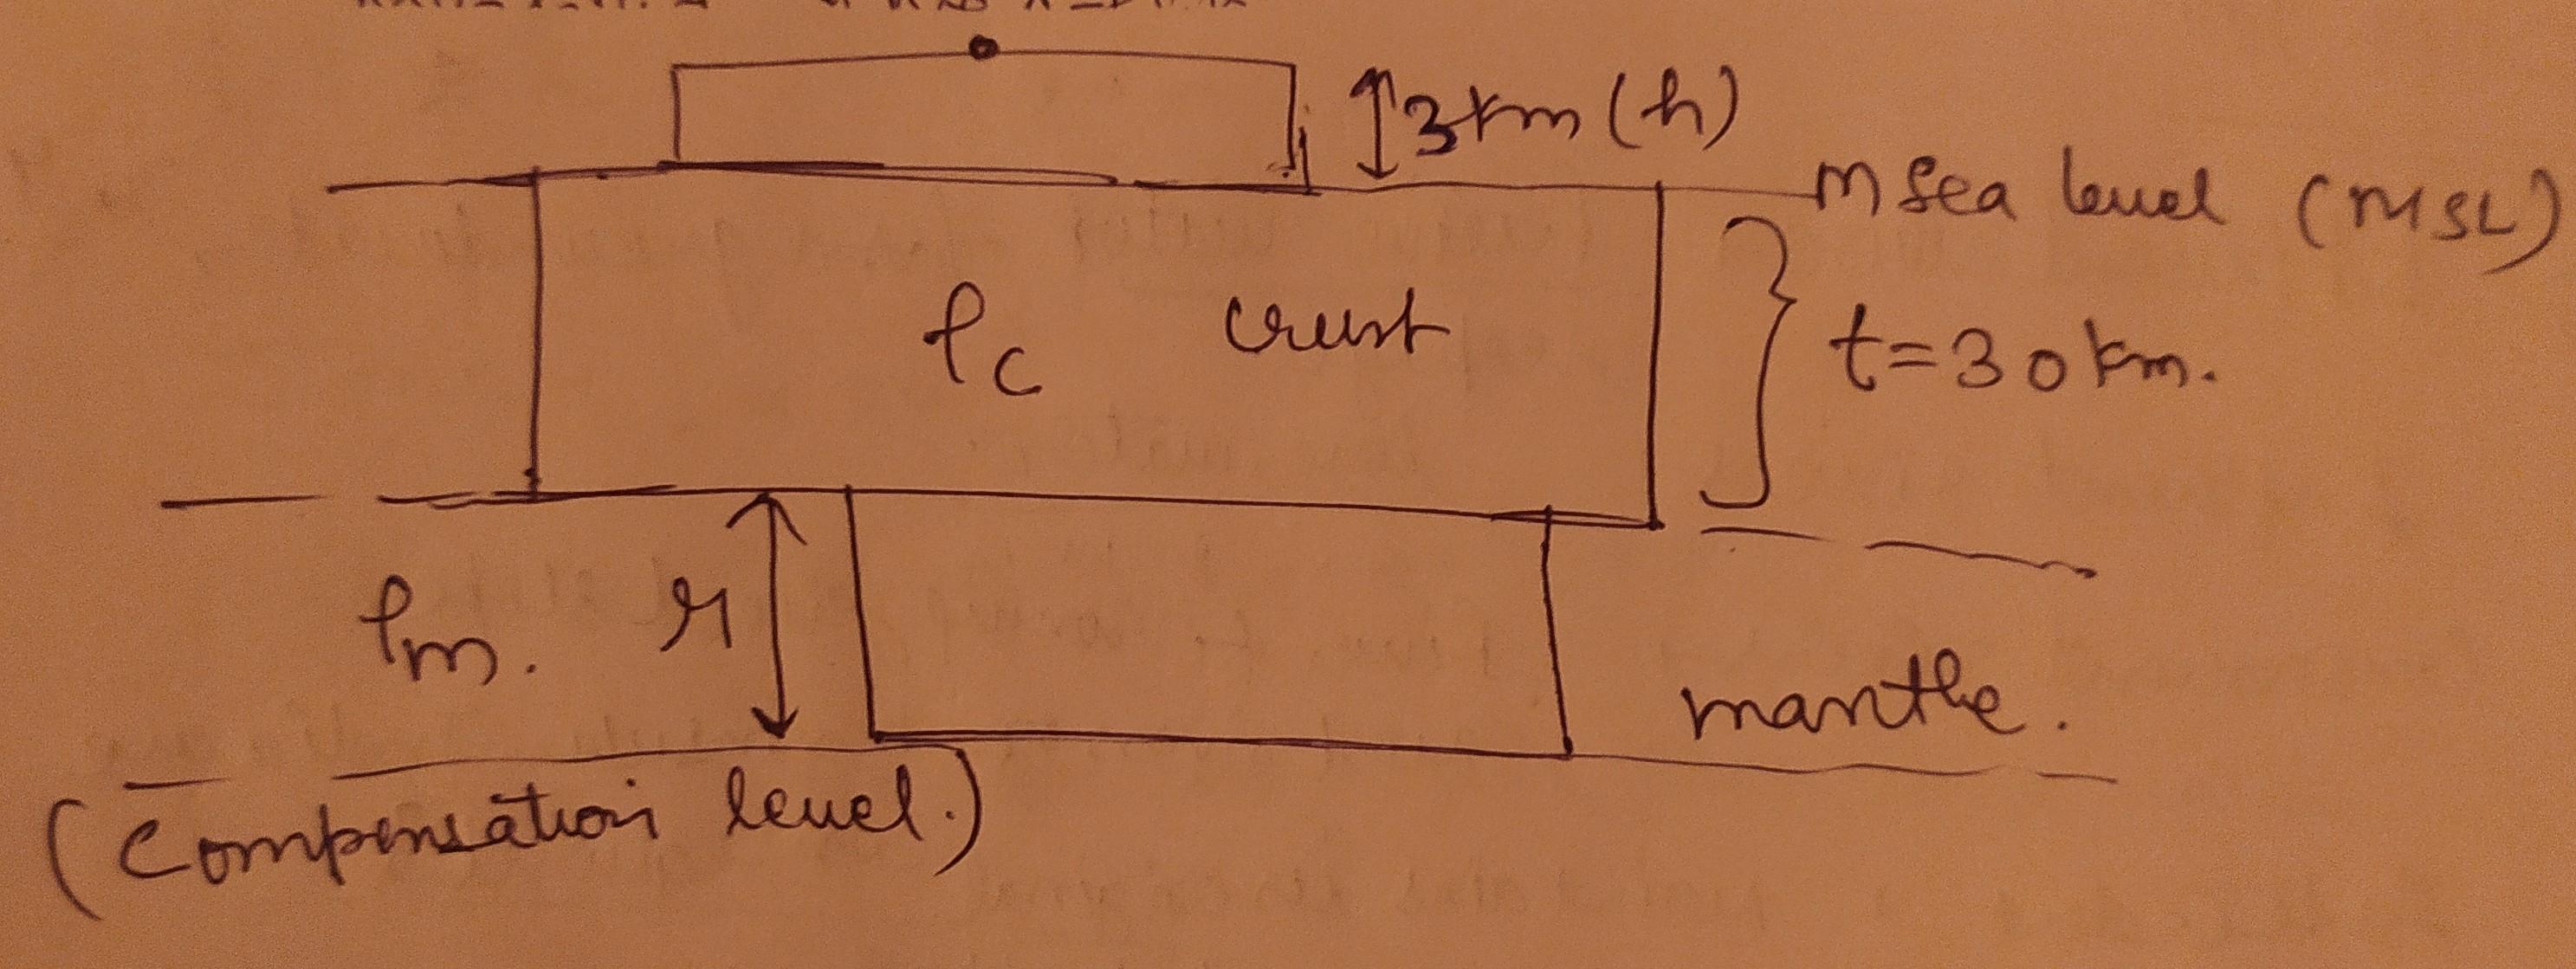 3km (h)
m sea level (MSL)
ρc crust
t=30 km.
ρm. r
mantle.
(Compensation level.)